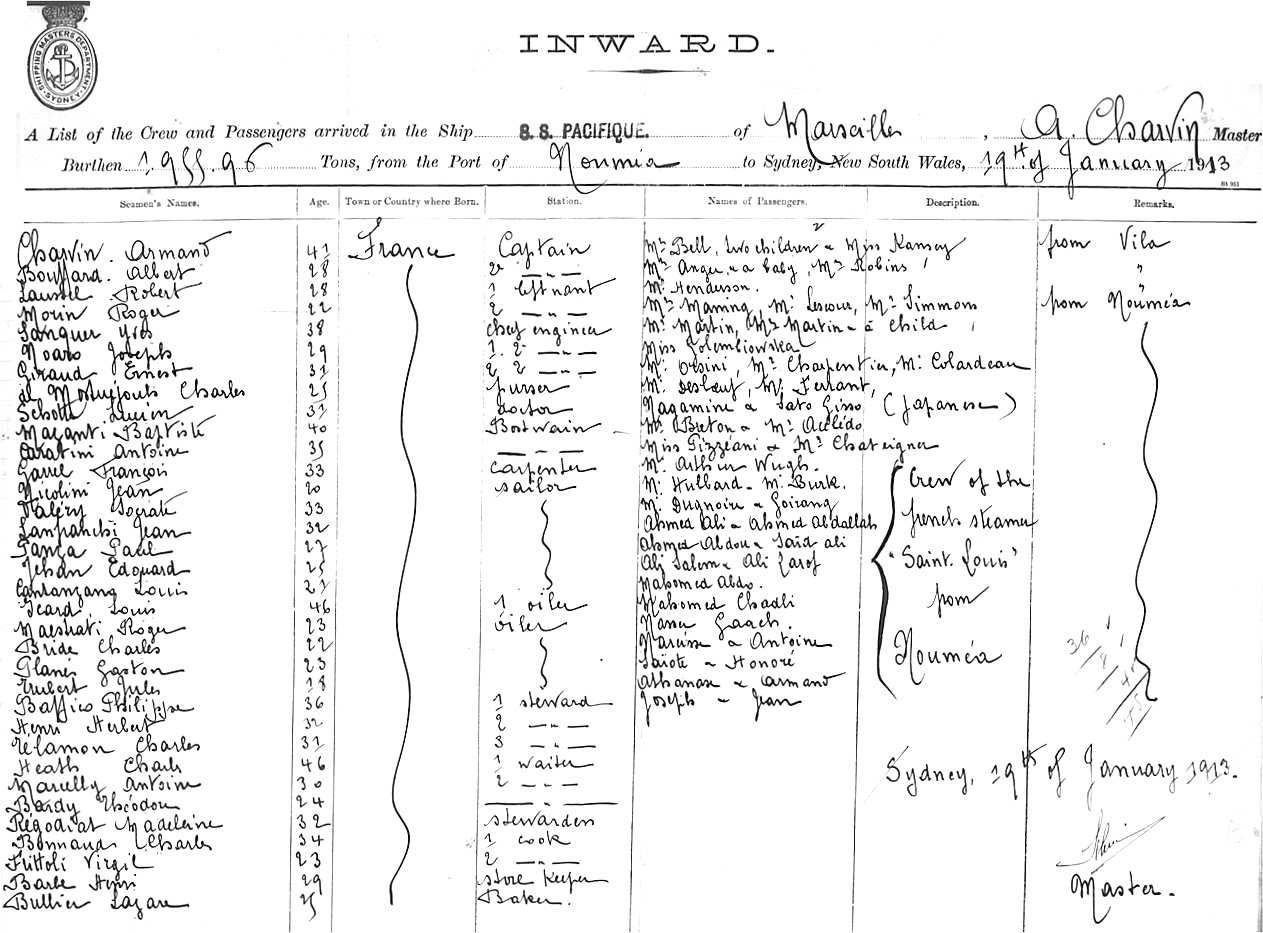 SHIPPING MASTERS DEPARTMENT SYDNEY
INWARD.
A List of the Crew and Passengers arrived in the Ship S. S. PACIFIQUE. of Marseille, A. Charvin Master
Burthen 1,955.96 Tons, from the Port of Nouméa to Sydney, New South Wales, 19th of January 1913
Seamen's Names. Age. Town or Country where Born. Station. Names of Passengers. Description. Remarks.
Charvin. Armand 41 France Captain Mrs Bell, two children & Miss Ramsey from Vila
Bouffard. Albert 28 2d —„— Mrs Anger & a baby, Mrs Robins „
Laussel Robert 28 1 leftnant Mr Henderson. „
Morin Roger 22 2 —„— Mrs Manning, Mr Lescour, Mr Simmons from Nouméa
Sanquer Yves 38 chef engineer Mr Martin, Mrs Martin & a child
Noaro Joseph 29 1. 2 —„— Miss Golembiowska
Giraud Ernest 31 2 2 —„— Mr Orsini, Mr Charpentier, Mr Colardeau
de Charles 25 purser Mr Desloeuf, Mr Ferrant,
Schott Lucien 31 doctor Nagamine & Sato Ginso (Japanese)
Maganti Baptiste 40 Bostwain Mr Breton & Mr
Caratini Antoine 35 —„— Miss Pizzéani & Mr Chateigner
Garrel François 33 carpenter Mr Arthur Wugh.
Nicolini Jean 20 sailor Mr Hulbard - Mr Burk. Crew of the
Valéry Socrate 33 Mr Dugnoire & Goirang
Lanfranchi Jean 32 Ahmed Ali & Ahmed Abdallah french steamer
Panza Paul 27 Ahmed Abdou & Saïd ali
Jehan Edouard 25 Ali Salem & Ali Zarof "Saint. Louis"
Louis 21 Mahomed Abdo.
Icard Louis 46 1 oiler Mahomed Chadli from
Maestrati Roger 23 oiler Nasser Gaach.
Bride Charles 22 Narcisse & Antoine
Planés Gaston 23 Saïote & Honoré Nouméa
Hubert Jules 18 Athanase & Armand
Baffico Philippe 36 1 steward Joseph & Jean
Henri Herbert 32 2 —„—
Télamon Charles 31 3 —„—
Heath Charles 46 1 waiter
Marcelly Antoine 30 2 —„— Sydney, 19th of January 1913.
Bardy Théodore 24 —„—
Régodiat Madeleine 32 stewardess
Bonnaud Charles 34 1 cook
Frittoli Virgil 23 2 —„—
Barbe Henri 29 store keeper
Bullier Lazare 25 Baker. Master.